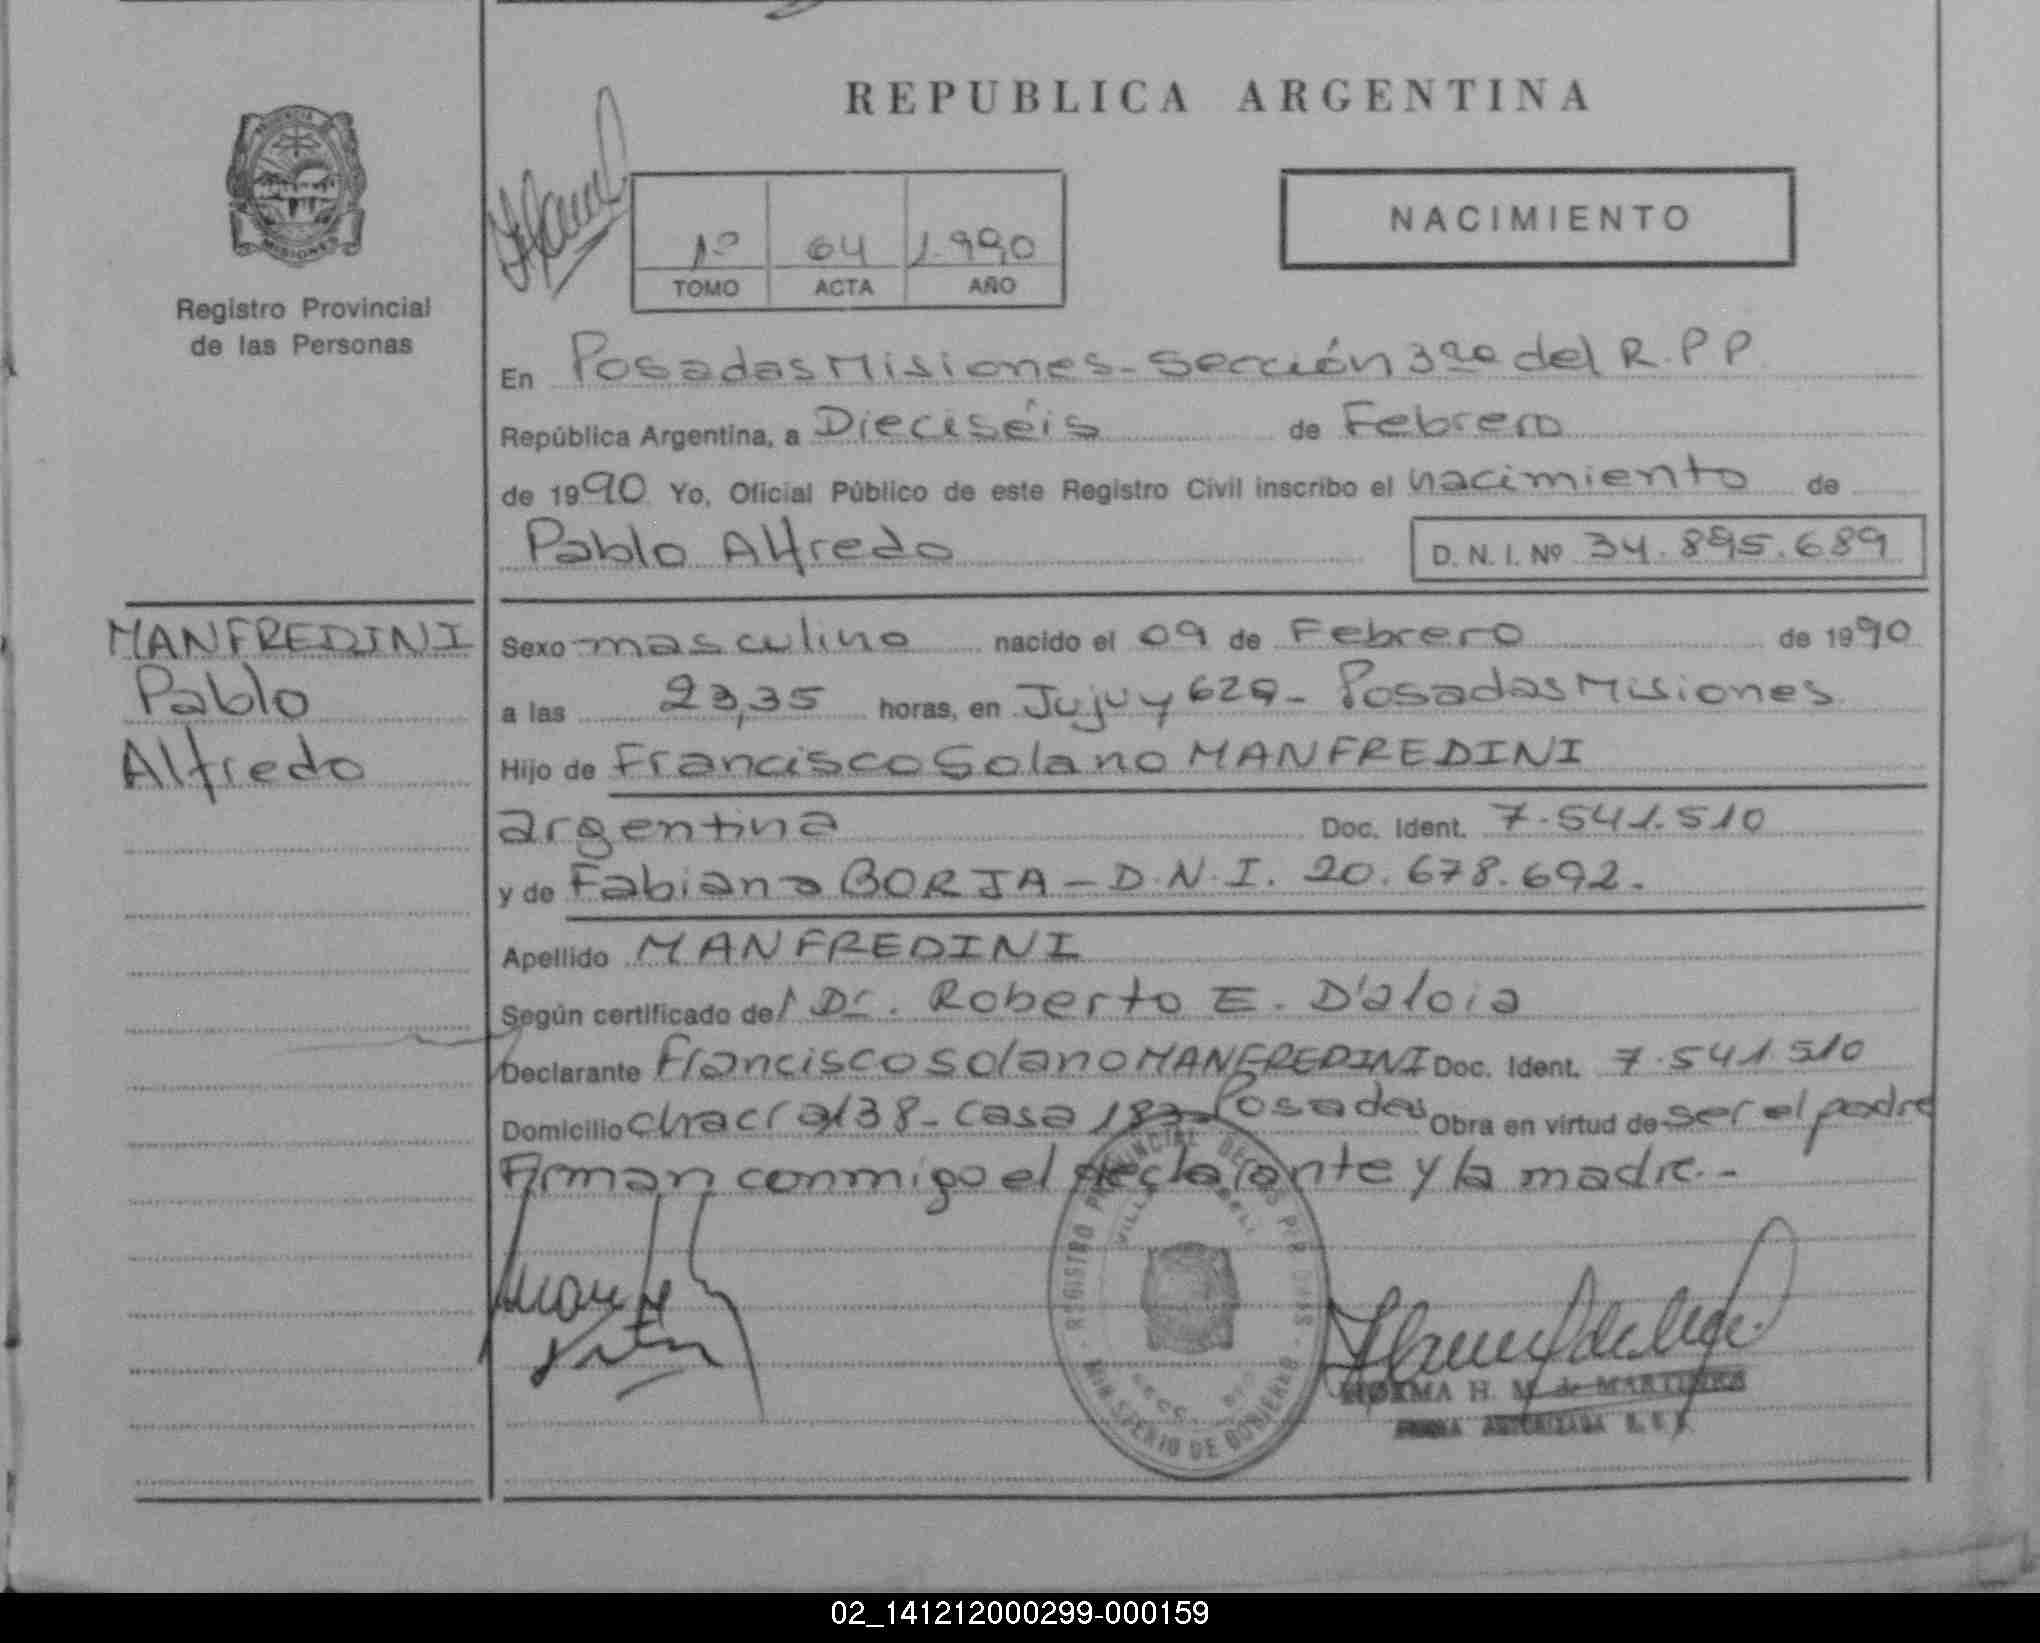 REPUBLICA ARGENTINA
NACIMIENTO
1º 64 1.990
TOMO ACTA AÑO
MISIONES
Registro Provincial
de las Personas
En Posadas Misiones - Sección 3ra del R.P.P.
República Argentina, a Dieciséis de Febrero
de 1990 Yo, Oficial Público de este Registro Civil inscribo el nacimiento de
Pablo Alfredo D.N.I. Nº 34.895.689
MANFREDINI
Pablo
Alfredo
Sexo masculino nacido el 09 de Febrero de 1990
a las 23,35 horas, en Jujuy 629 - Posadas Misiones
Hijo de Francisco Solano MANFREDINI
argentina Doc. Ident. 7.541.510
y de Fabiana BORJA - D.N.I. 20.678.692.
Apellido MANFREDINI
Según certificado del Dr. Roberto E. D'aloia
Declarante Francisco Solano MANFREDINI Doc. Ident. 7.541510
Domicilio chacra 138 - casa 183 - Posadas Obra en virtud de ser el padre
Firman conmigo el declarante y la madre.-
REGISTRO PROVINCIAL DE LAS PERSONAS
MINISTERIO DE GOBIERNO
NORMA H. M. de MARTINEZ
FIRMA AUTORIZADA
02_141212000299-000159